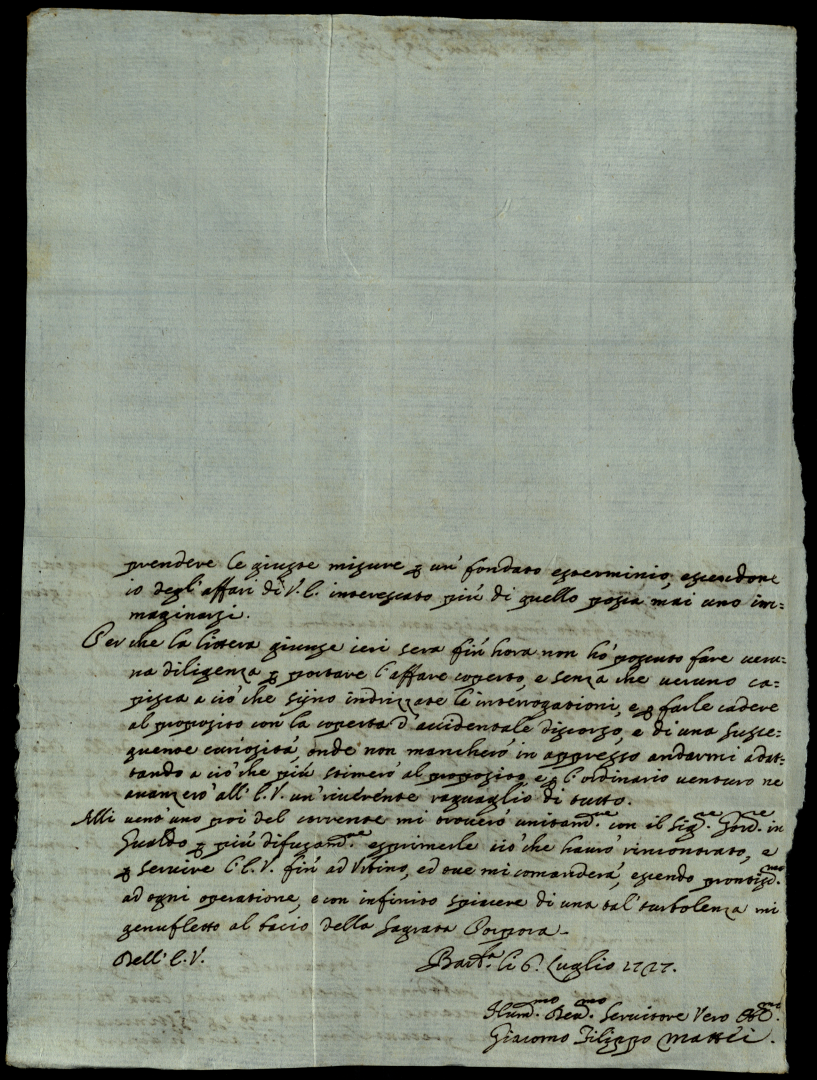 prendere le giuste misure p un' fondato esterminio, essendone
io degl' affari di V. E. interessato più di quello possa mai uno im=
maginarsi.
Perche la lettera giunse ieri sera fin' hora non hò potuto fare veru=
na diligenza p portare l'affare coperto, e senza che veruno ca=
pisca a ciò che sijno indrizzate le interrogationi, e p farle cadere
al proposito con la coperta d'accidentale discorso, e di una susse=
guente curiosità, onde non mancherò in appresso andarmi adat=
tando a ciò che più stimerò al proposito, e p l'ordinario venturo ne
avanzerò all' E. V. un' riverente raguaglio di tutto.
Alli vent'uno poi del corrente mi troverò unitam.te con il Sig.re in
Gualdo p più difusam.te esprimerle ciò che havrò rincontrato, e
p servire l'E. V. fin' ad Urbino, ed ove mi comanderà, essendo prontiss.mo
ad ogni operatione, e con infinito spiacere di una tal' turbolenza mi
genufletto al bacio della Sagrata Porpora.
Dell' E. V.
li 6. Luglio 1727.
Humil.mo Servitore Vero
Giacomo Filippo Mattei.